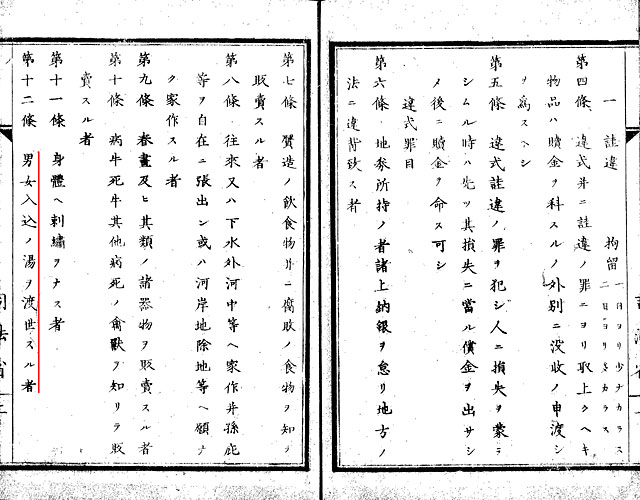 一 詿違 拘留 一日ヨリ少ナカラス
二日ヨリ多カラス
第四條 違式并ニ詿違ノ罪ニヨリ取上クヘキ
物品ハ贖金ヲ科スルノ外別ニ沒收ノ申渡シ
ヲ爲スヘシ
第五條 違式詿違ノ罪ヲ犯シ人ニ損失ヲ蒙ラ
シムル時ハ先ツ其損失ニ當ル償金ヲ出サシ
メ後ニ贖金ヲ命ス可シ
違式罪目
第六條 地劵所持ノ者諸上納銀ヲ怠リ地方ノ
法ニ違背致ス者
第七條 贋造ノ飮食物并ニ腐敗ノ食物ヲ知テ
販賣スル者
第八條 往來又ハ下水外河中等ヘ家作并孫庇
等ヲ自在ニ張出シ或ハ河岸地除地等ヘ願ナ
ク家作スル者
第九條 春畫及ヒ其類ノ諸器物ヲ販賣スル者
第十條 病牛死牛其他病死ノ禽獸ヲ知リテ販
賣スル者
第十一條 身體ヘ刺繡ヲナス者
第十二條 男女入込ノ湯ヲ渡世スル者
司法省